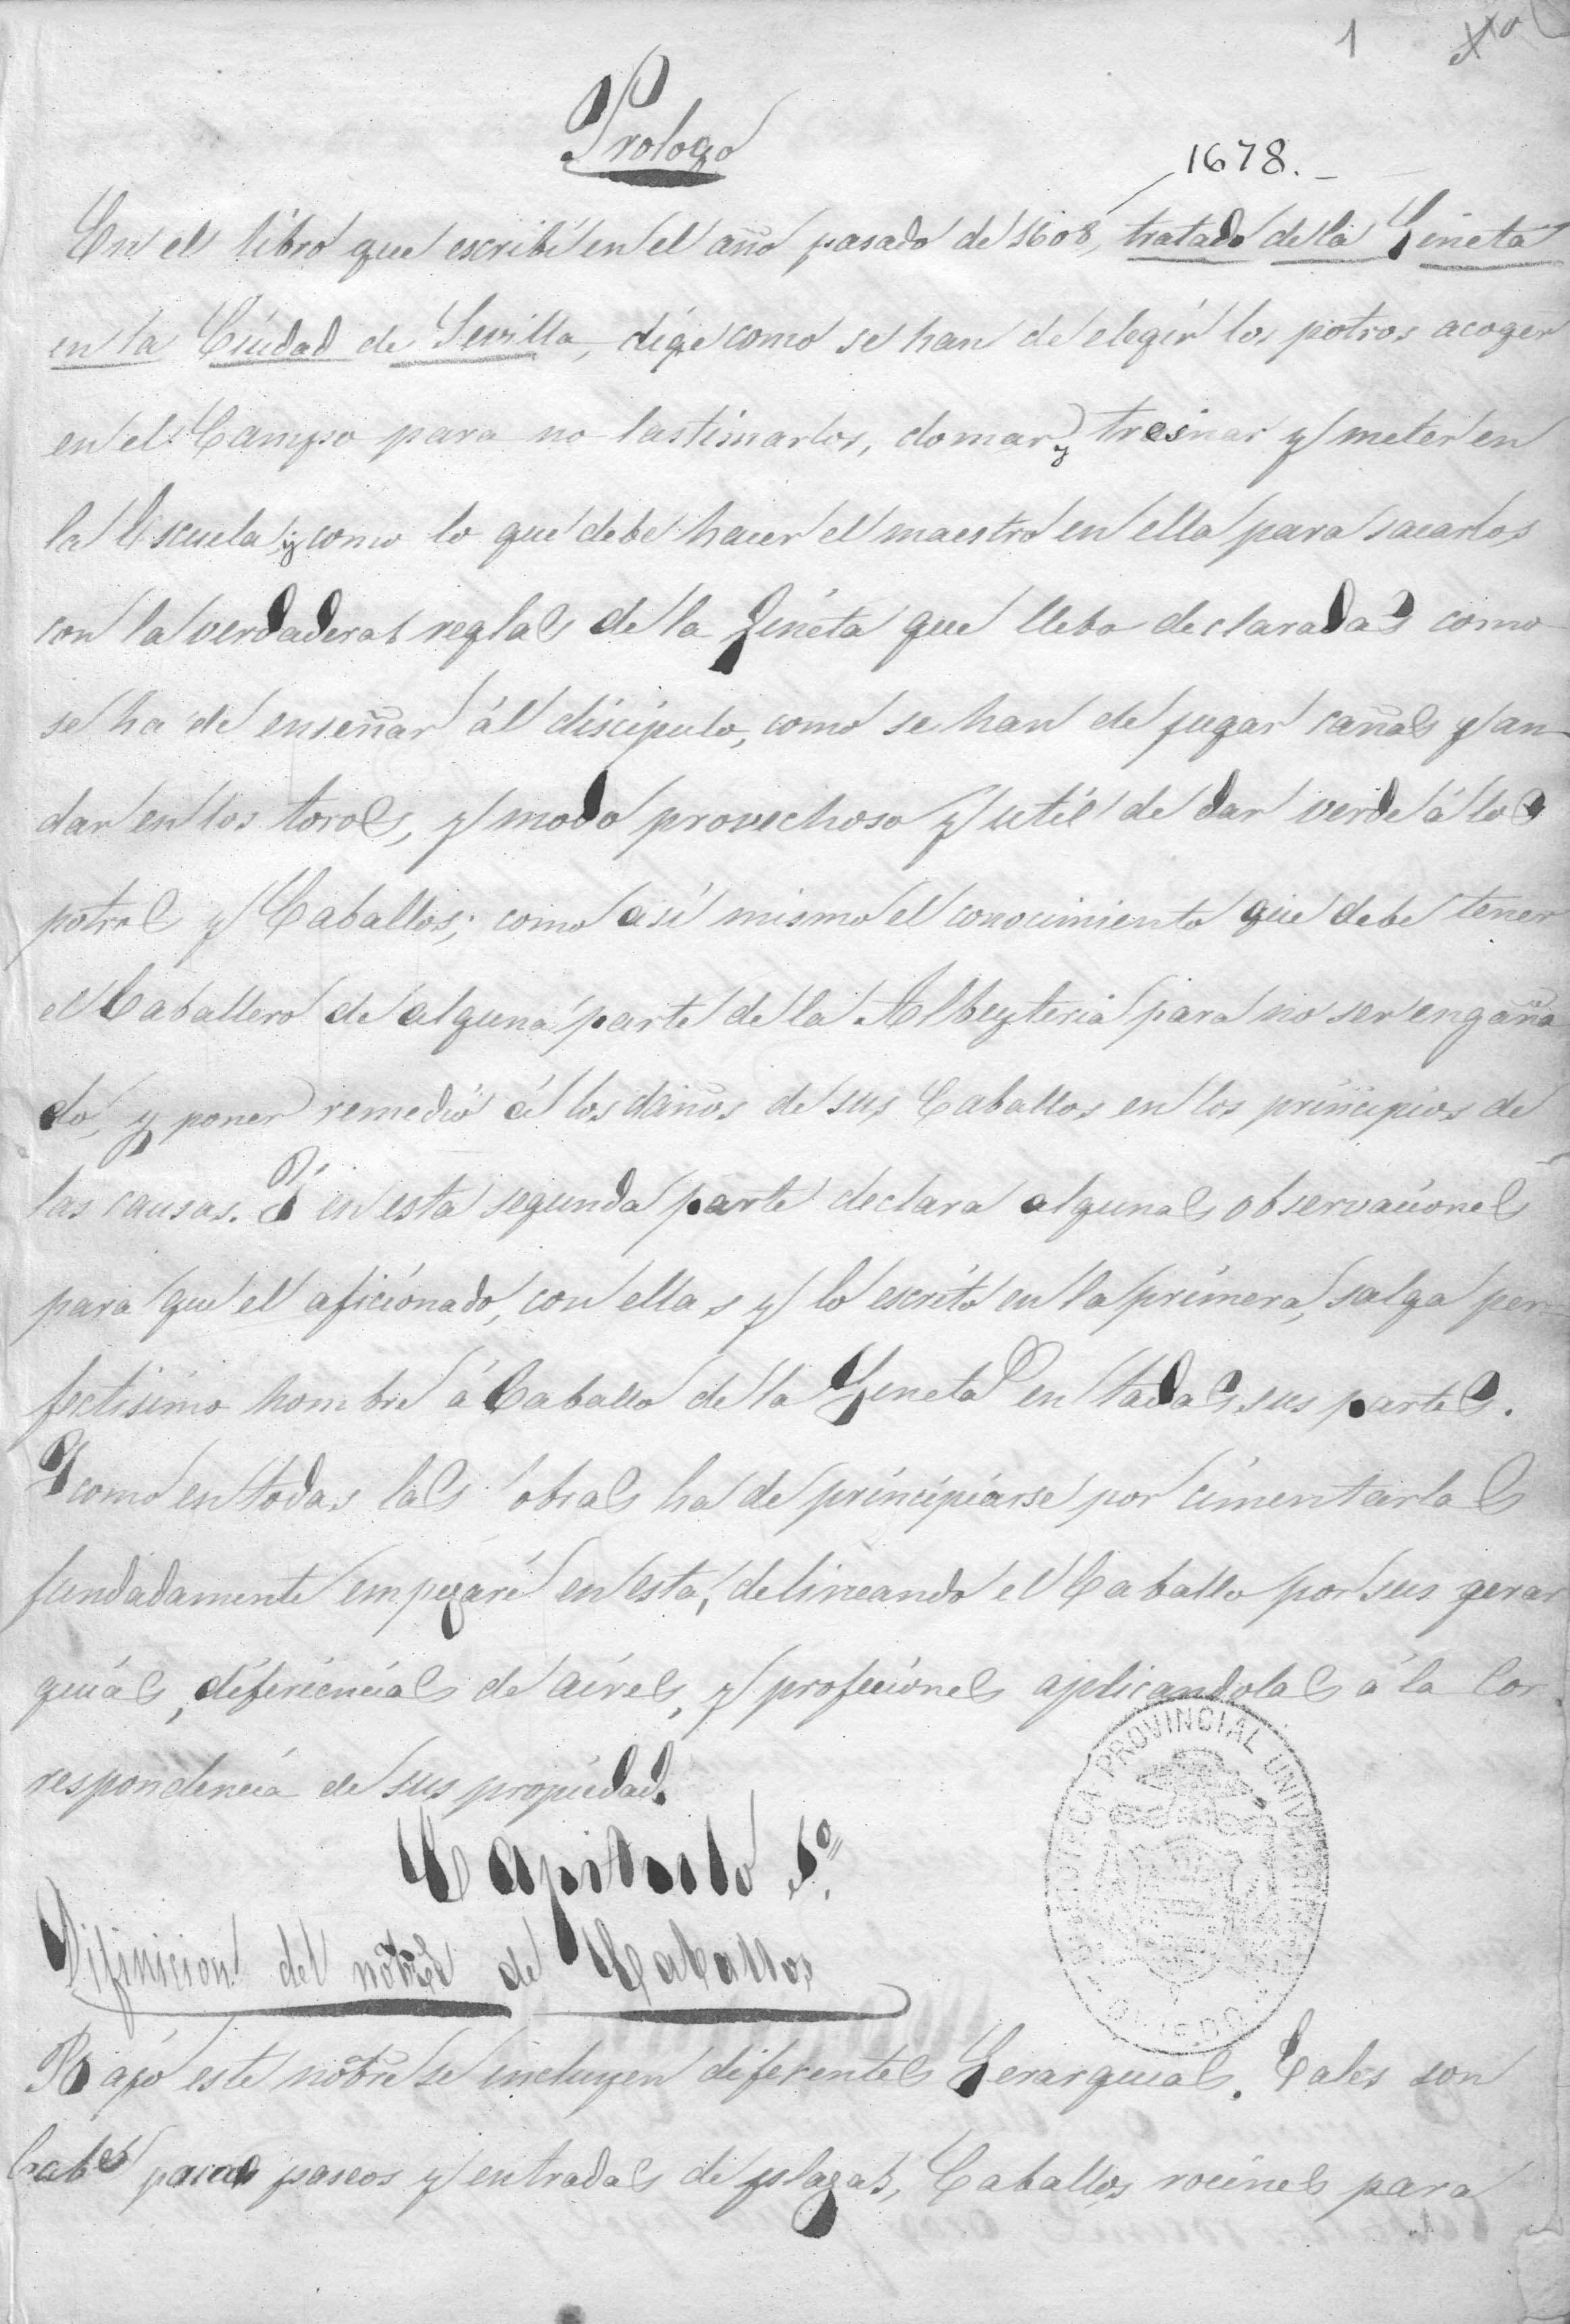 1
Prologo
1678.
En el libro que escribí en el año pasado de 1608, tratado de la Gineta
en la Ciudad de Sevilla, dige como se han de elegir los potros acoger
en el Campo para no lastimarlos, domar, y tresnar y meter en
la Escuela, y como lo que debe hacer el maestro en ella para sacarlos
con la verdaderas reglas de la Gineta que llebo declaradas como
se ha de enseñar ál discipulo, como se han de jugar cañas y an-
dar en los toros, y modo provechoso y util de dar verde á los
potros y Caballos; como asi mismo el conocimiento que debe tener
el Caballero de alguna parte de la Albeyteria para no ser engaña
do, y poner remedio á los daños de sus Caballos en los principios de
las causas. Y en esta segunda parte declara algunas observaciones
para que el aficionado, con ellas y lo escrito en la primera, salga per-
fectisimo hombre á Caballo de la Gineta en tadas sus partes.
Y como en todas las obras ha de principiarse por cimentarlas
fundadamente empezaré en esta, delineando el Caballo por sus gerar
quias, diferencias de aires, y profeciones aplicandolas á la Cor
respondencia de sus propiedad.
Capitulo 1º
Difinicion del nombre de Caballos
Bajo este nõbre se incluyen diferentes Gerarquias. Tales son
Cabos para paseos y entradas de plazas, Caballos rocines para
BIBLIOTECA PROVINCIAL UNIVERSITARIA
OVIEDO